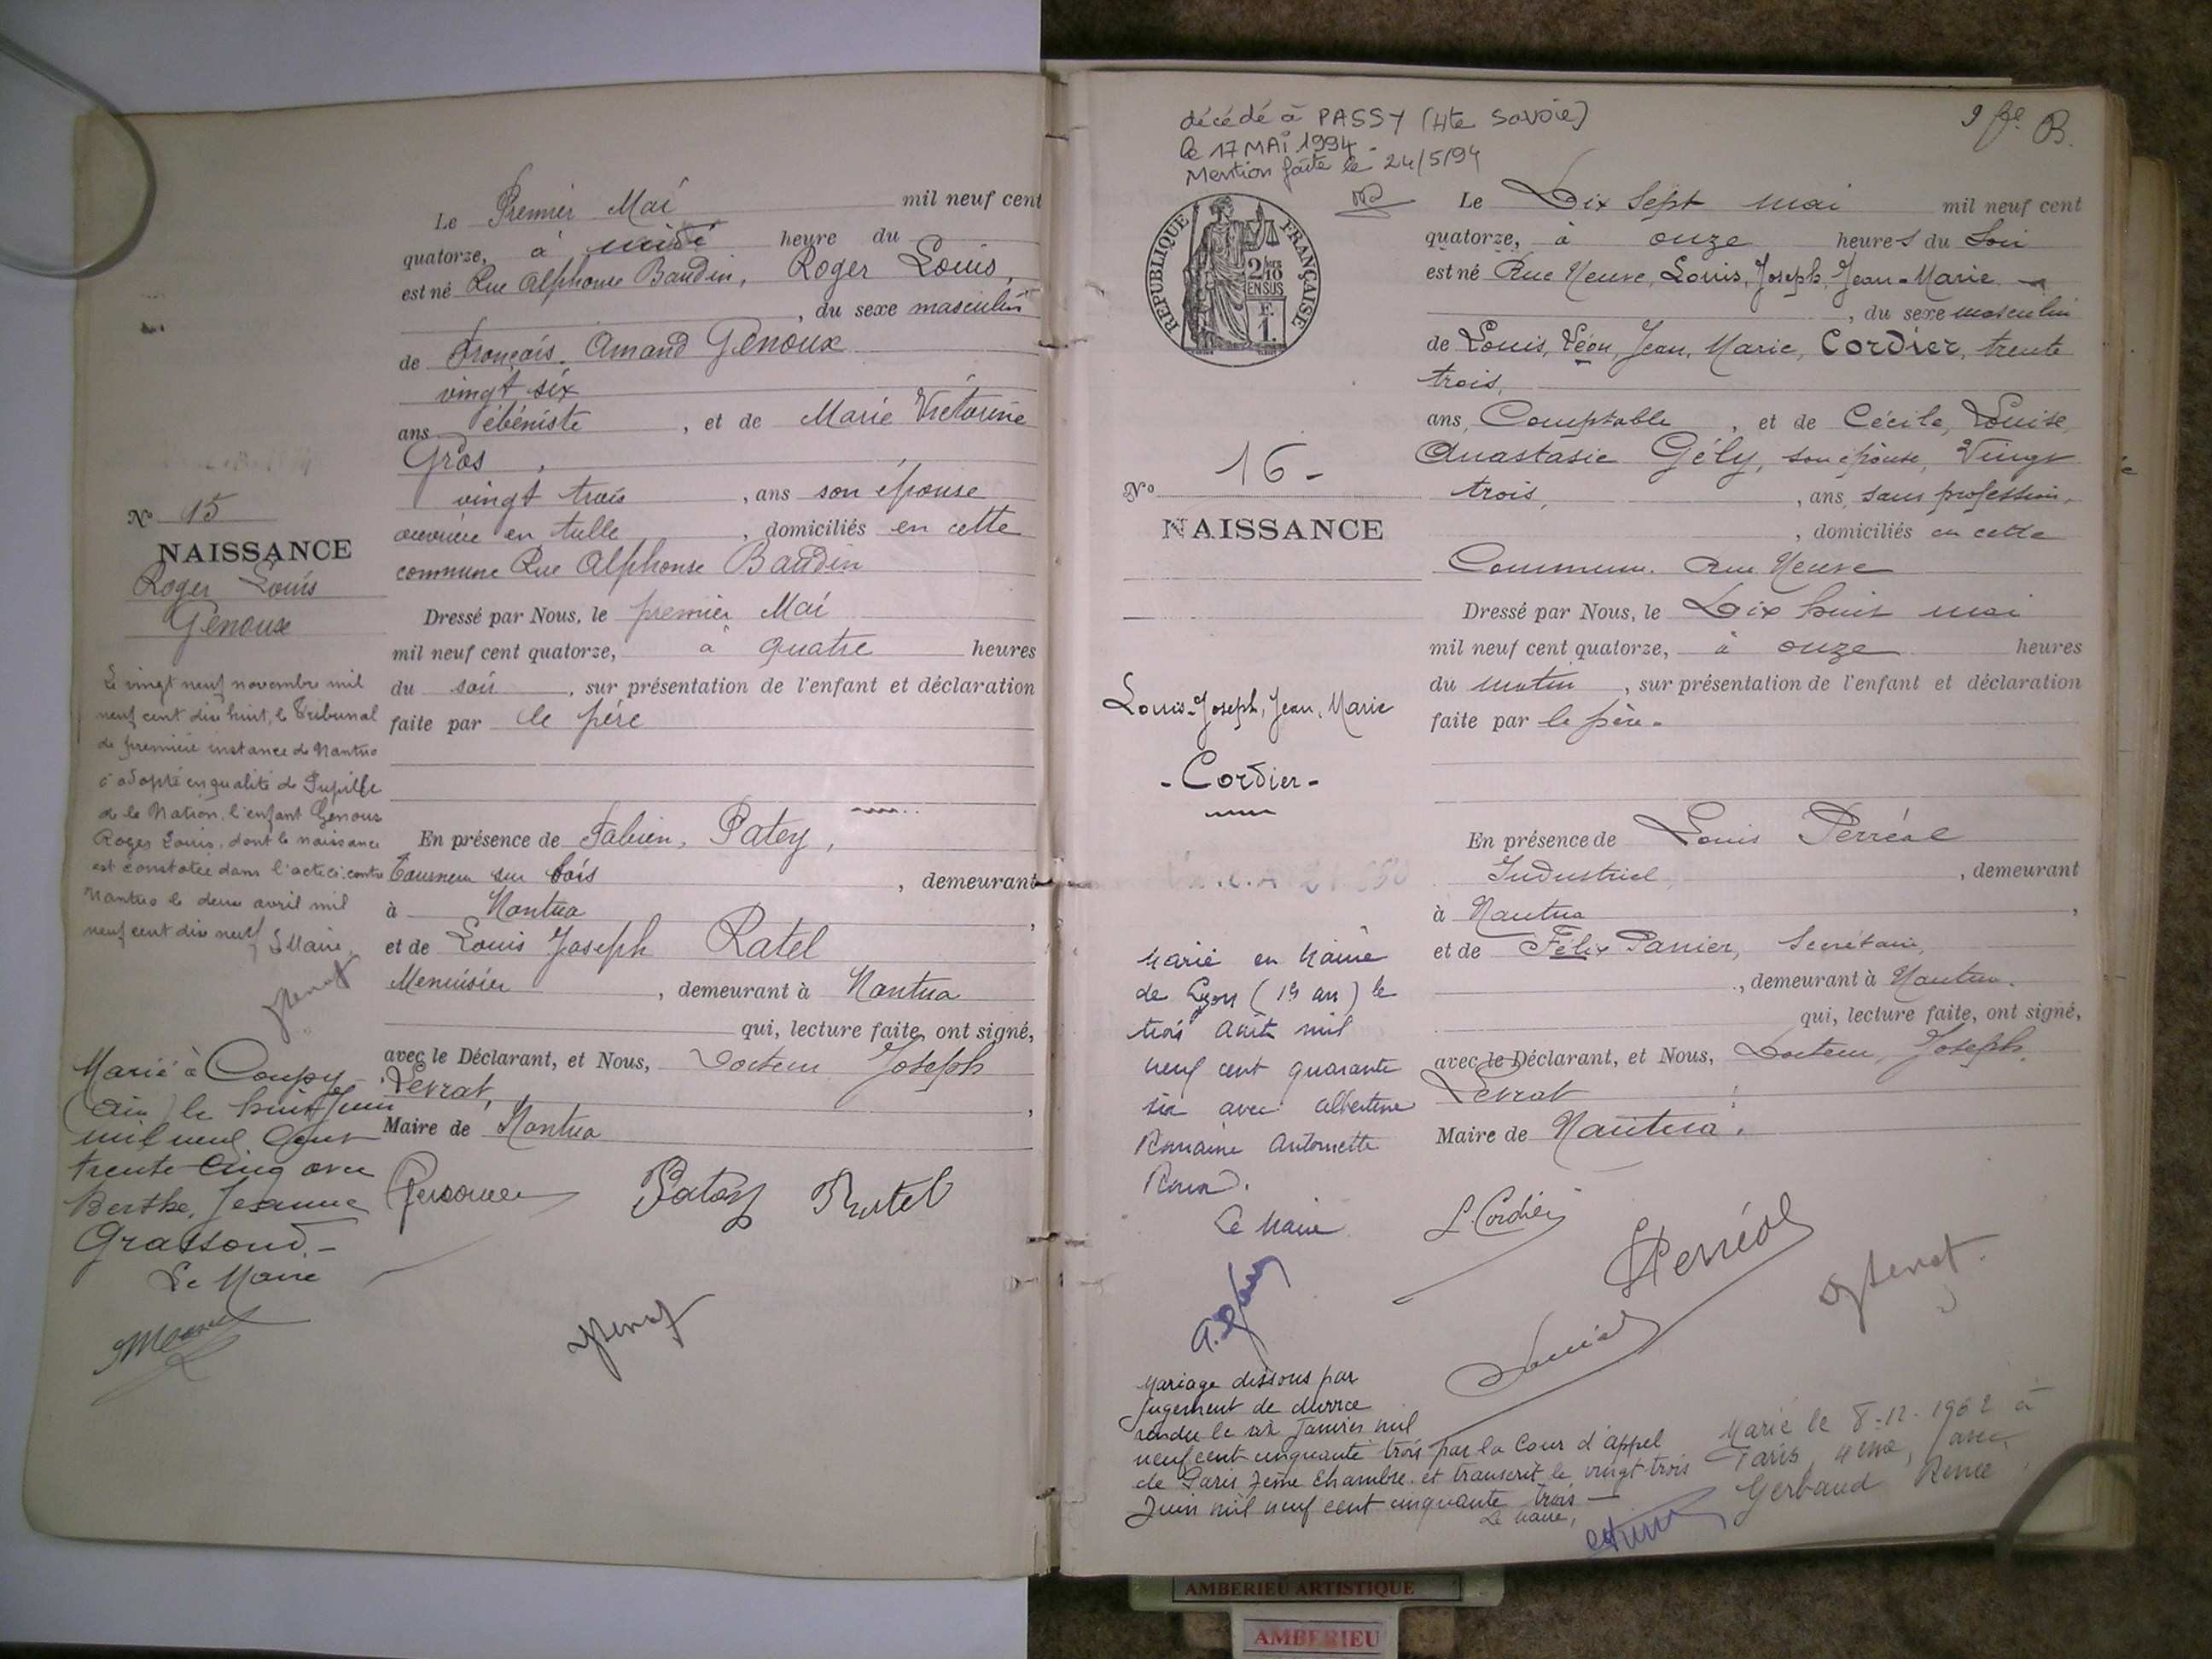 Le Premier Mai mil neuf cent
quatorze, à midi heure du
est né Rue Alphonse Baudin, Roger Louis,
, du sexe masculin
de François Amand Genoux
vingt six
ans ébéniste, et de Marie Victorine
Gros,
vingt trois, ans son épouse
ouvrière en tulle, domiciliés en cette
commune Rue Alphonse Baudin
Dressé par Nous, le premier Mai
mil neuf cent quatorze, à quatre heures
du soir, sur présentation de l'enfant et déclaration
faite par le père
En présence de Fabien, Patey,
Tourneur sur bois, demeurant
à Nantua,
et de Louis Joseph Ratel
Menuisier, demeurant à Nantua
qui, lecture faite, ont signé,
avec le Déclarant, et Nous, Docteur Joseph
Levrat,
Maire de Nantua
Patey Ratel
No 15
NAISSANCE
Roger Louis
Genoux
Le vingt neuf novembre mil
neuf cent dix huit, le Tribunal
de première instance de Nantua
a adopté en qualité de Pupille
de la Nation, l'enfant Genoux
Roger Louis, dont la naissance
est constatée dans l'acte ci-contre
Nantua le deux avril mil
neuf cent dix neuf
Le Maire,
Marié à Coupy
(Ain) le huit Juin
mil neuf Cent
trente Cinq avec
Berthe, Jeanne
Grassoud.-
Le Maire
décédé à PASSY (Hte Savoie)
le 17 MAI 1994.
Mention faite le 24/5/94
9 B.
RÉPUBLIQUE FRANÇAISE
2/10
EN SUS
F.
1.
Le Dix Sept mai mil neuf cent
quatorze, à onze heures du Soir
est né Rue Neuve, Louis, Joseph, Jean-Marie
, du sexe masculin
de Louis, Léon, Jean, Marie, Cordier, trente
trois,
ans, Comptable, et de Cécile, Louise,
Anastasie Gély, son épouse, Vingt
trois, , ans, sans profession,
, domiciliés en cette
Commune. Rue Neuve
Dressé par Nous, le Dix huit mai
mil neuf cent quatorze, à onze heures
du matin, sur présentation de l'enfant et déclaration
faite par le père.
En présence de Louis Perréal
Industriel, demeurant
à Nantua,
et de Félix Panier, Secrétaire,
, demeurant à Nantua.
qui, lecture faite, ont signé,
avec le Déclarant, et Nous, Docteur, Joseph,
Levrat
Maire de Nantua.
L. Cordier
Perréal
No 16-
NAISSANCE
Louis-Joseph, Jean, Marie
-Cordier-
Marié en Mairie
de Lyon (1er arr) le
trois Août mil
neuf cent quarante
six avec Albertine
Romaine Antoinette
Roux.
Le Maire
Mariage dissous par
jugement de divorce
rendu le six Janvier mil
neuf cent cinquante trois par la Cour d'appel
de Paris 7ème Chambre et transcrit le vingt-trois
Juin mil neuf cent cinquante trois -
Le Maire,
Marié le 8-12-1962 à
Paris
Gerbaud Renée
AMBERIEU ARTISTIQUE
AMBERIEU